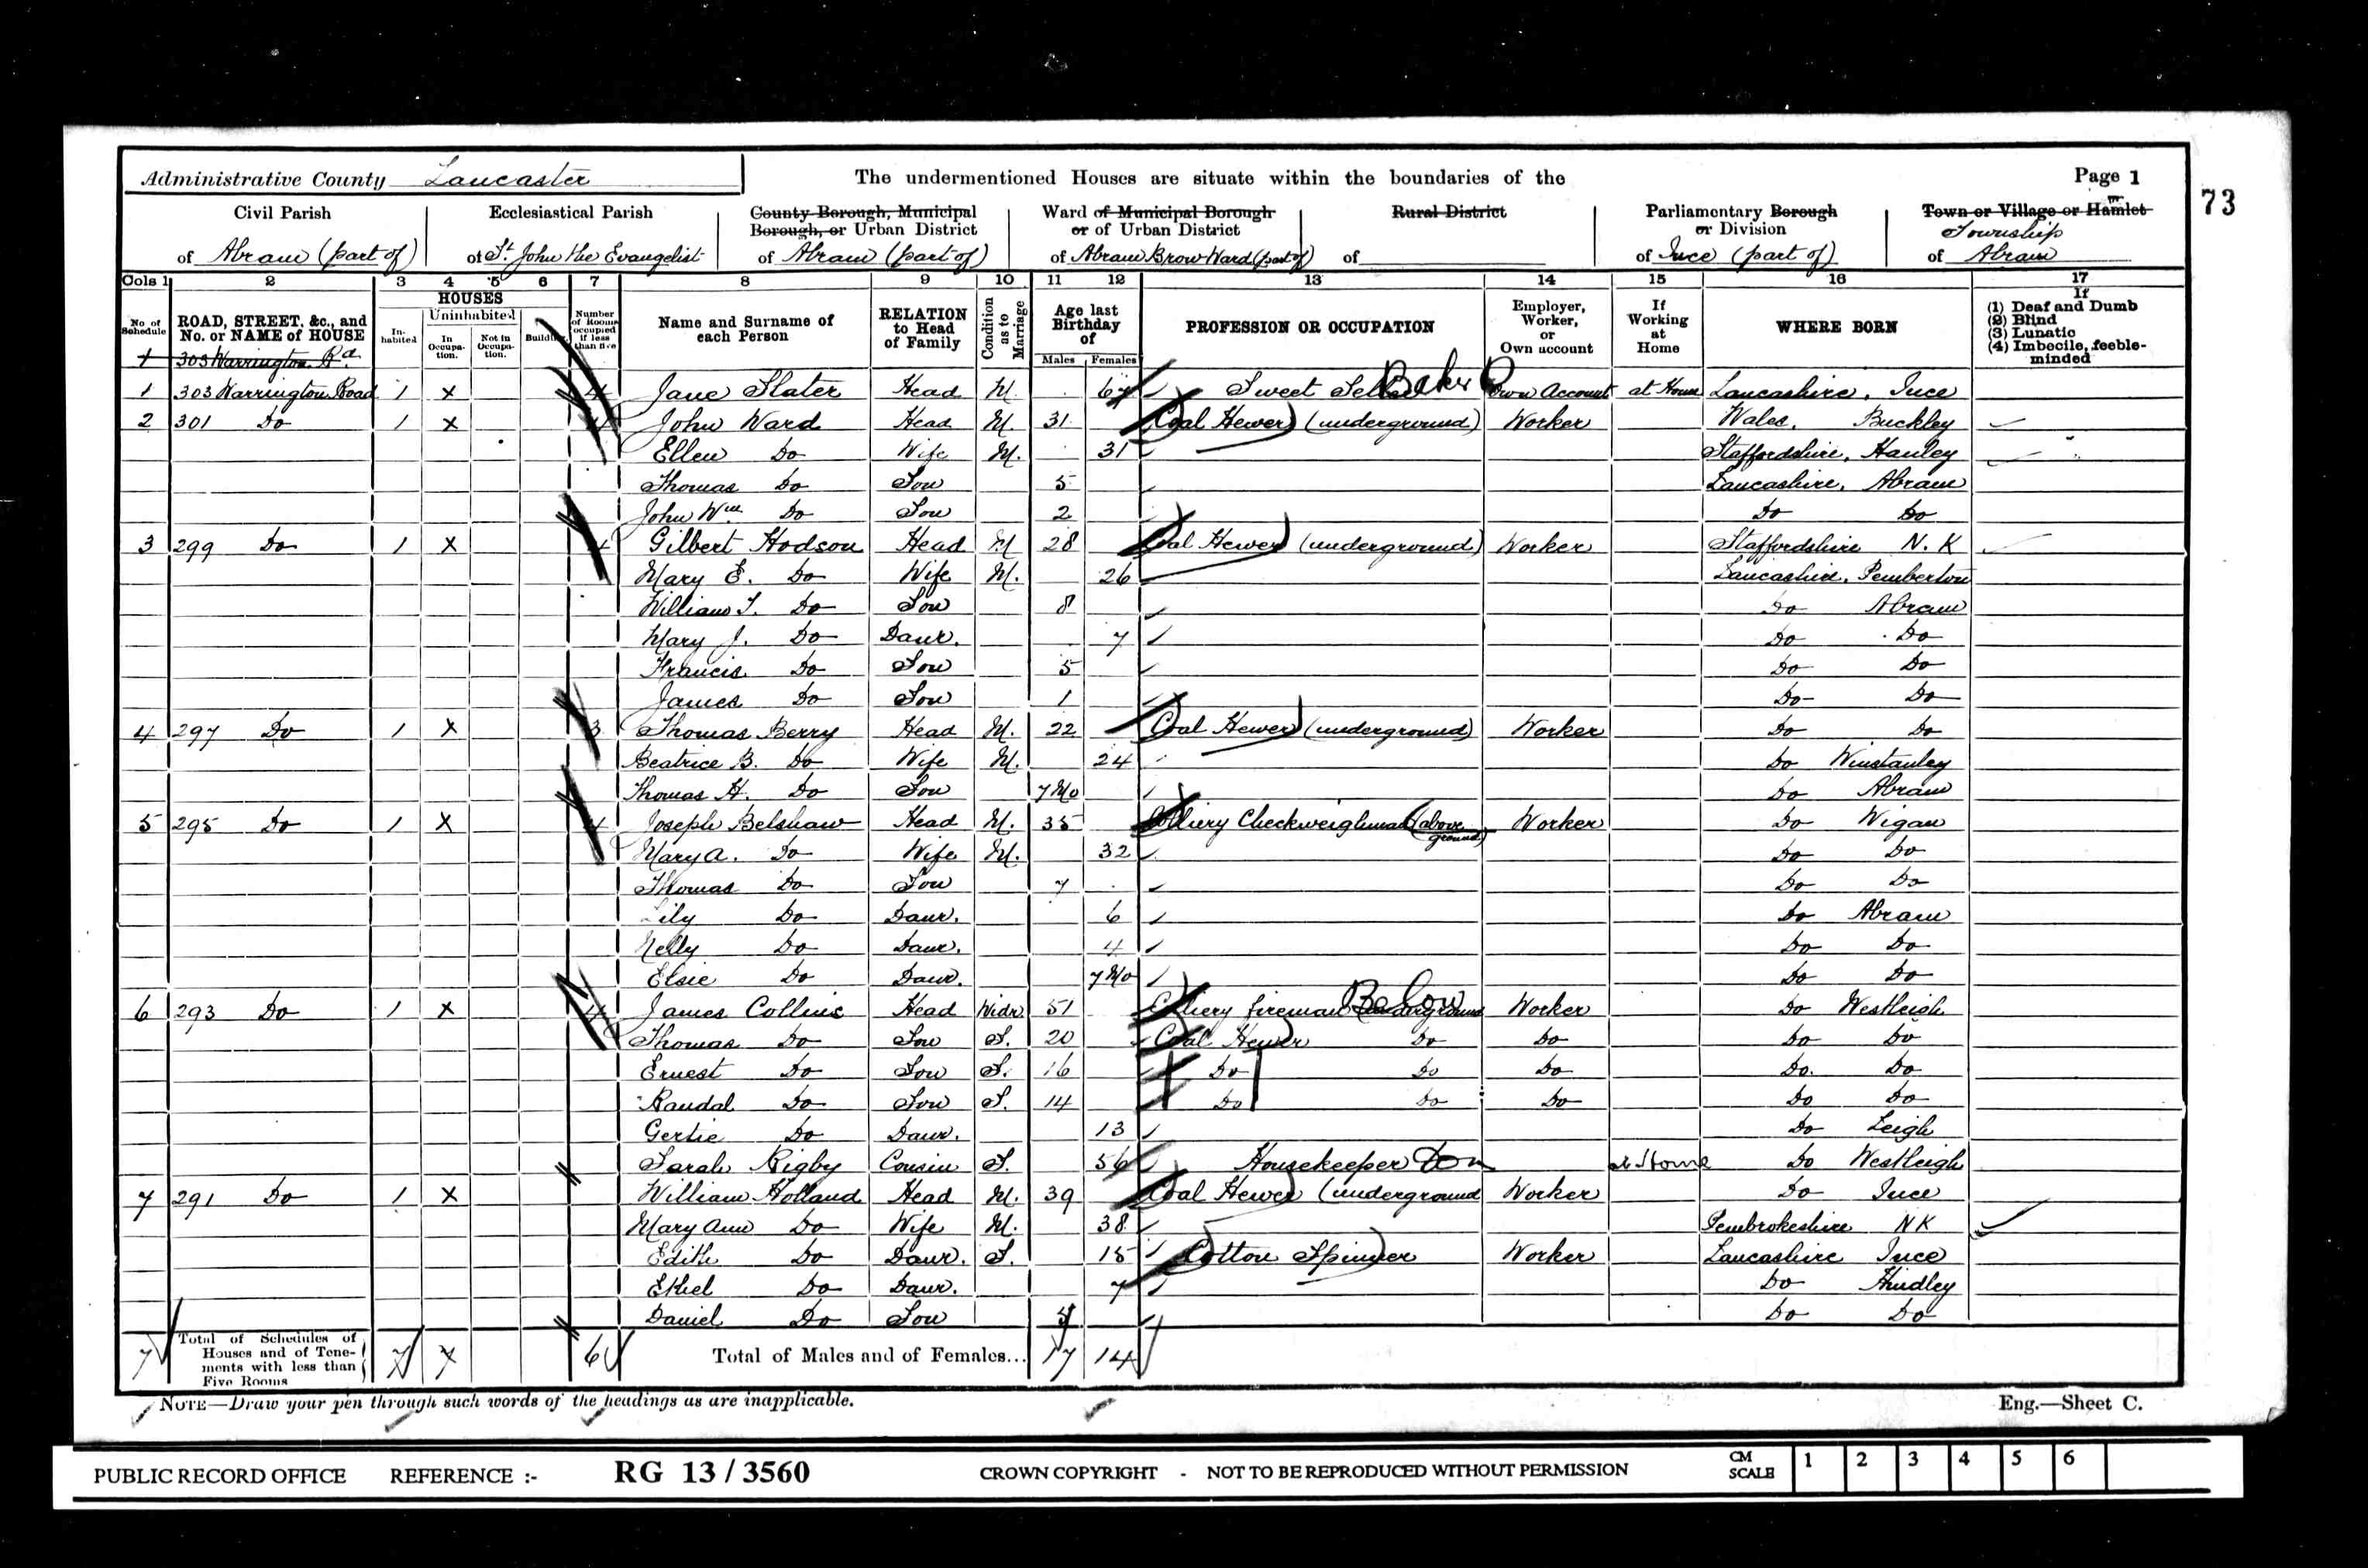 Administrative County Lancaster The undermentioned Houses are situate within the boundaries of the Page 1
73
Civil Parish of Abram (part of)
Ecclesiastical Parish of St. John the Evangelist
County Borough, Municipal Borough, or Urban District of Abram (part of)
Ward of Municipal Borough or of Urban District of Abram Brow Ward (part of)
Rural District of
Parliamentary Borough or Division of Ince (part of)
Town or Village or Hamlet Township of Abram
Cols 1 2 3 4 5 6 7 8 9 10 11 12 13 14 15 16 17
No. of Schedule
ROAD, STREET, &c., and No. or NAME of HOUSE
HOUSES
Inhabited
Uninhabited
In Occupation.
Not in Occupation.
Building
Number of Rooms occupied if less than five
Name and Surname of each Person
RELATION to Head of Family
Condition as to Marriage
Age last Birthday of
Males Females
PROFESSION OR OCCUPATION
Employer, Worker, or Own account
If Working at Home
WHERE BORN
If
(1) Deaf and Dumb
(2) Blind
(3) Lunatic
(4) Imbecile, feeble-minded
1 303 Warrington Rd
1 303 Warrington Road 1 X 4 Jane Slater Head M 67 Sweet Seller Baker Own Account at Home Lancashire, Ince
2 301 Do 1 X 4 John Ward Head M. 31 Coal Hewer (underground) Worker Wales, Buckley
Ellen Do Wife M. 31 Staffordshire, Hanley
Thomas Do Son 5 Lancashire, Abram
John Wm Do Son 2 Do Do
3 299 Do 1 X 4 Gilbert Hodson Head M 28 Coal Hewer (underground) Worker Staffordshire N. K
Mary E. Do Wife M. 26 Lancashire, Pemberton
William T. Do Son 8 Do Abram
Mary J. Do Daur. 7 Do Do
Francis Do Son 5 Do Do
James Do Son 1 Do Do
4 297 Do 1 X 3 Thomas Berry Head M. 22 Coal Hewer (underground) Worker Do Do
Beatrice B. Do Wife M. 24 Do Winstanley
Thomas H. Do Son 7 Mo Do Abram
5 295 Do 1 X 4 Joseph Belshaw Head M. 35 Colliery Checkweighman (above ground) Worker Do Wigan
Mary A. Do Wife M. 32 Do Do
Thomas Do Son 7 Do Do
Lily Do Daur. 6 Do Abram
Nelly Do Daur. 4 Do Do
Elsie Do Daur. 7 Mo Do Do
6 293 Do 1 X 4 James Collins Head Widr 51 Colliery fireman (underground Below Worker Do Westleigh
Thomas Do Son S. 20 Coal Hewer Do Do Do Do
Ernest Do Son S. 16 Do Do Do Do. Do
Randal Do Son S. 14 Do Do Do Do Do
Gertie Do Daur. 13 Do Leigh
Sarah Rigby Cousin S. 56 Housekeeper Dom at Home Do Westleigh
7 291 Do 1 X William Holland Head M. 39 Coal Hewer (underground Worker Do Ince
Mary Ann Do Wife M. 38 Pembrokeshire NK
Edith Do Daur. S. 15 Cotton Spinner Worker Lancashire Ince
Ethel Do Daur. 7 Do Hindley
Daniel Do Son Do Do
7 Total of Schedules of Houses and of Tenements with less than Five Rooms 7 7 6 Total of Males and of Females... 17 14
NOTE—Draw your pen through such words of the headings as are inapplicable. Eng.—Sheet C.
PUBLIC RECORD OFFICE REFERENCE :- RG 13 / 3560 CROWN COPYRIGHT - NOT TO BE REPRODUCED WITHOUT PERMISSION CM SCALE 1 2 3 4 5 6